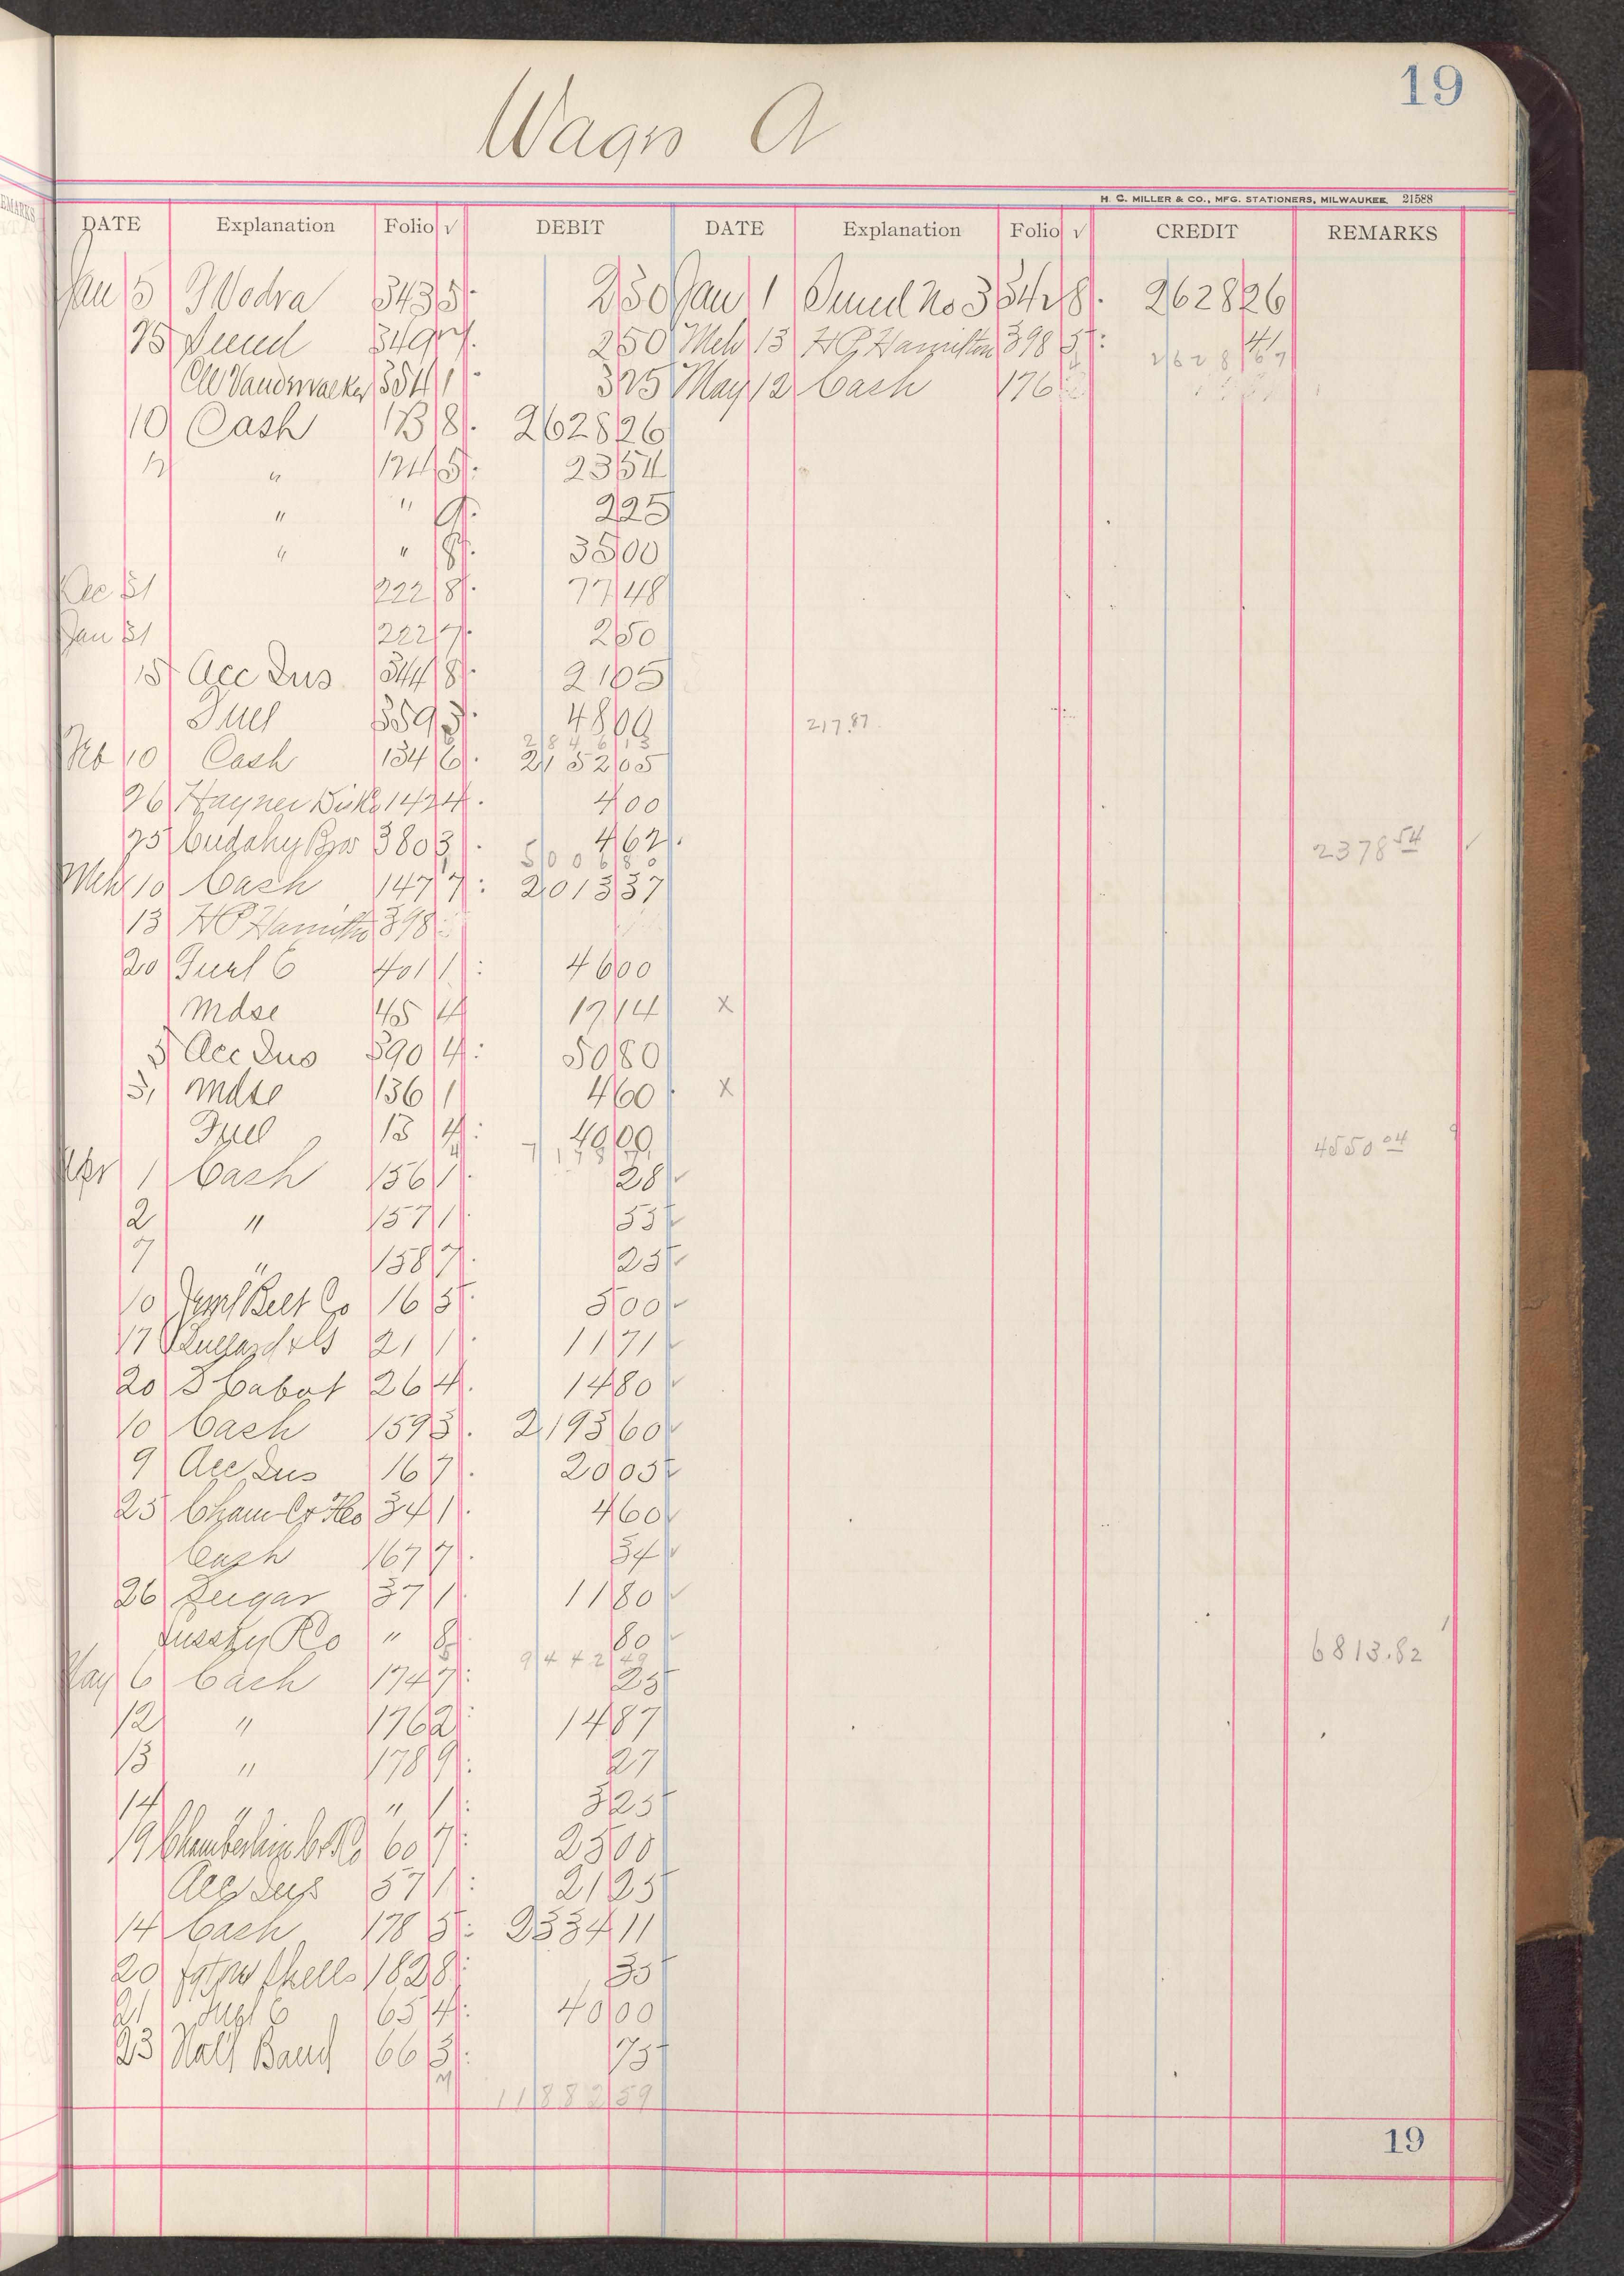 19
Wages A
H. C. MILLER & CO., MFG. STATIONERS, MILWAUKEE 21588
DATE Explanation Folio √ DEBIT DATE Explanation Folio √ CREDIT REMARKS
Jan 5 343 5 2 50 Jan 1 No 3 342 8 2628 26
25 349 2 50 Mch 13 H P Hamilton 398 5 41
2628 67
CW 354 1 3 25 May 12 Cash 176
10 Cash 8 2628 26
12 " 124 5 23 54
" " 9 2 25
" " 8 35 00
Dec 31 222 8 77 48
Jan 31 222 7 2 50
15 Acc Dus 344 8 21 05
Fuel 359 3 48 00 217.87
2846 13
Feb 10 Cash 134 6 2152 05
26 Hayner 142 4 4 00
25 Cudahy Bros 380 3 4 62 2378 54
5006 80
Mch 10 Cash 147 7 2013 37
13 H P Hamilton 398
20 Fuel C 401 1 46 00
Mdse 45 4 17 14 x
5 Acc Dus 390 4 50 80
31 Mdse 136 1 4 60 x
Fuel 13 4 40 00 4550 04
Apr 1 Cash 156 1 28 ✓
2 " 157 1 55 ✓
7 " 158 7 25 ✓
10 Belt Co 16 5 5 00 ✓
17 21 1 11 71 ✓
20 S Cabot 26 4 14 80 ✓
10 Cash 159 3 2193 60 ✓
9 Acc Dus 16 7 20 05 ✓
25 34 1 4 60 ✓
Cash 167 7 34 ✓
26 Sugar 37 1 11 80 ✓
" 8 80 ✓
9442 49 6813.82
May 6 Cash 174 7 25
12 " 176 2 14 87
13 " 178 9 27
14 " " 1 3 25
19 Chamberlain 60 7 25 00
Acc Dus 57 1 21 25
14 Cash 178 5 2334 11
20 182 8 35
21 Fuel C 65 4 40 00
23 Natl Band 66 3 75
11882 59
19